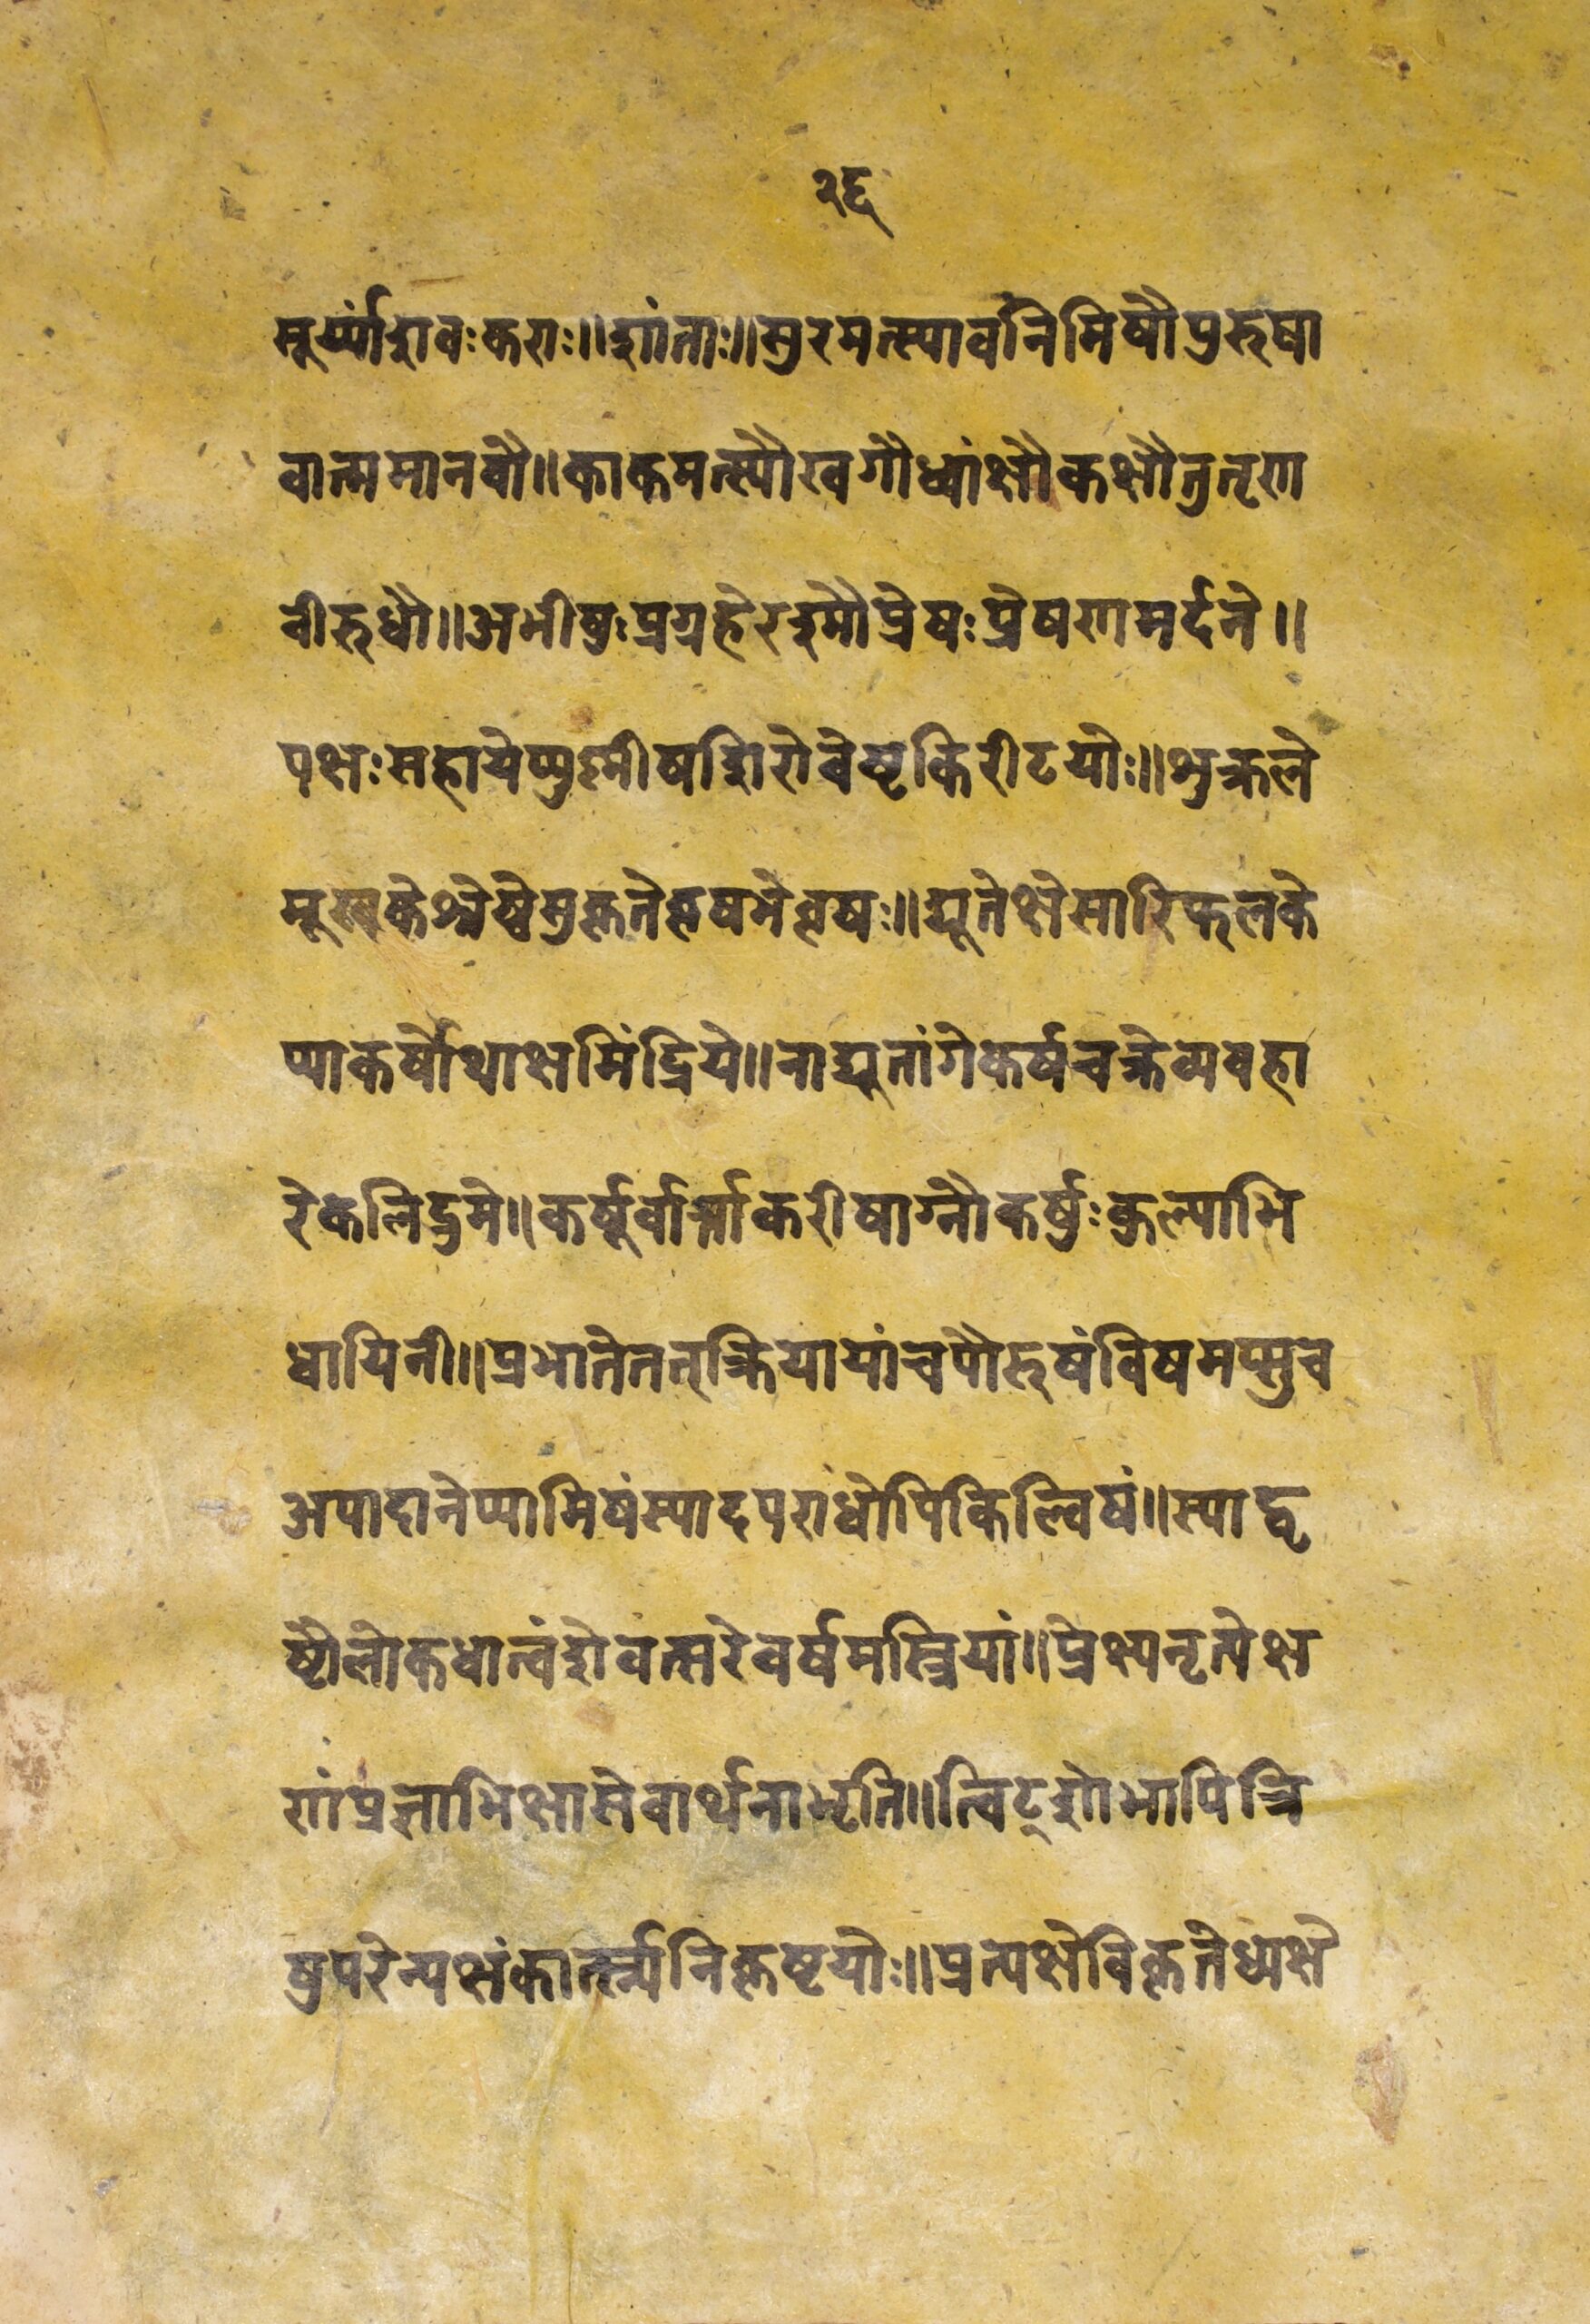 २६
सूर्य्यांशवःकराः॥शांताः॥सुरमत्स्यावनिमिषौपुरुषा
वात्ममानवौ॥काकमत्स्यौखगौध्वांक्षौकक्षौतुतृण
वीरुधौ॥अभीषुःप्रग्रहेरश्मौप्रेषःप्रेषणमर्दने॥
पक्षःसहायेप्युश्मीषःशिरोवेष्टकिरीटयोः॥शुक्रले
मूखकेश्रेष्ठेसुकृतेवृषभेवृषः॥द्यूतेक्षेसारिफलके
प्याकर्षोथाक्षमिंद्रिये॥नाद्यूतांगेकर्षचक्रेव्यवहा
रेकलिद्रुमे॥कर्षूर्वार्त्ताकरीषाग्नौकर्षुःकुल्याभि
धायिनी॥प्रभातेतत्क्रियायांचपौरुषंविषमप्सुच
अपादानेप्यामिषंस्यादपराधोपिकिल्विषं॥स्याद्वृ
ष्टौलोकधात्वंशेवत्सरेवर्षमस्त्रियां॥प्रेक्ष्यनृत्येक्ष
णांप्रज्ञाभिक्षासेवार्थनाभृति॥त्विट्शोभापित्रि
षुपरेन्यक्षंकार्त्स्न्यनिकृष्टयोः॥प्रत्यक्षेविकृतेध्यक्षे